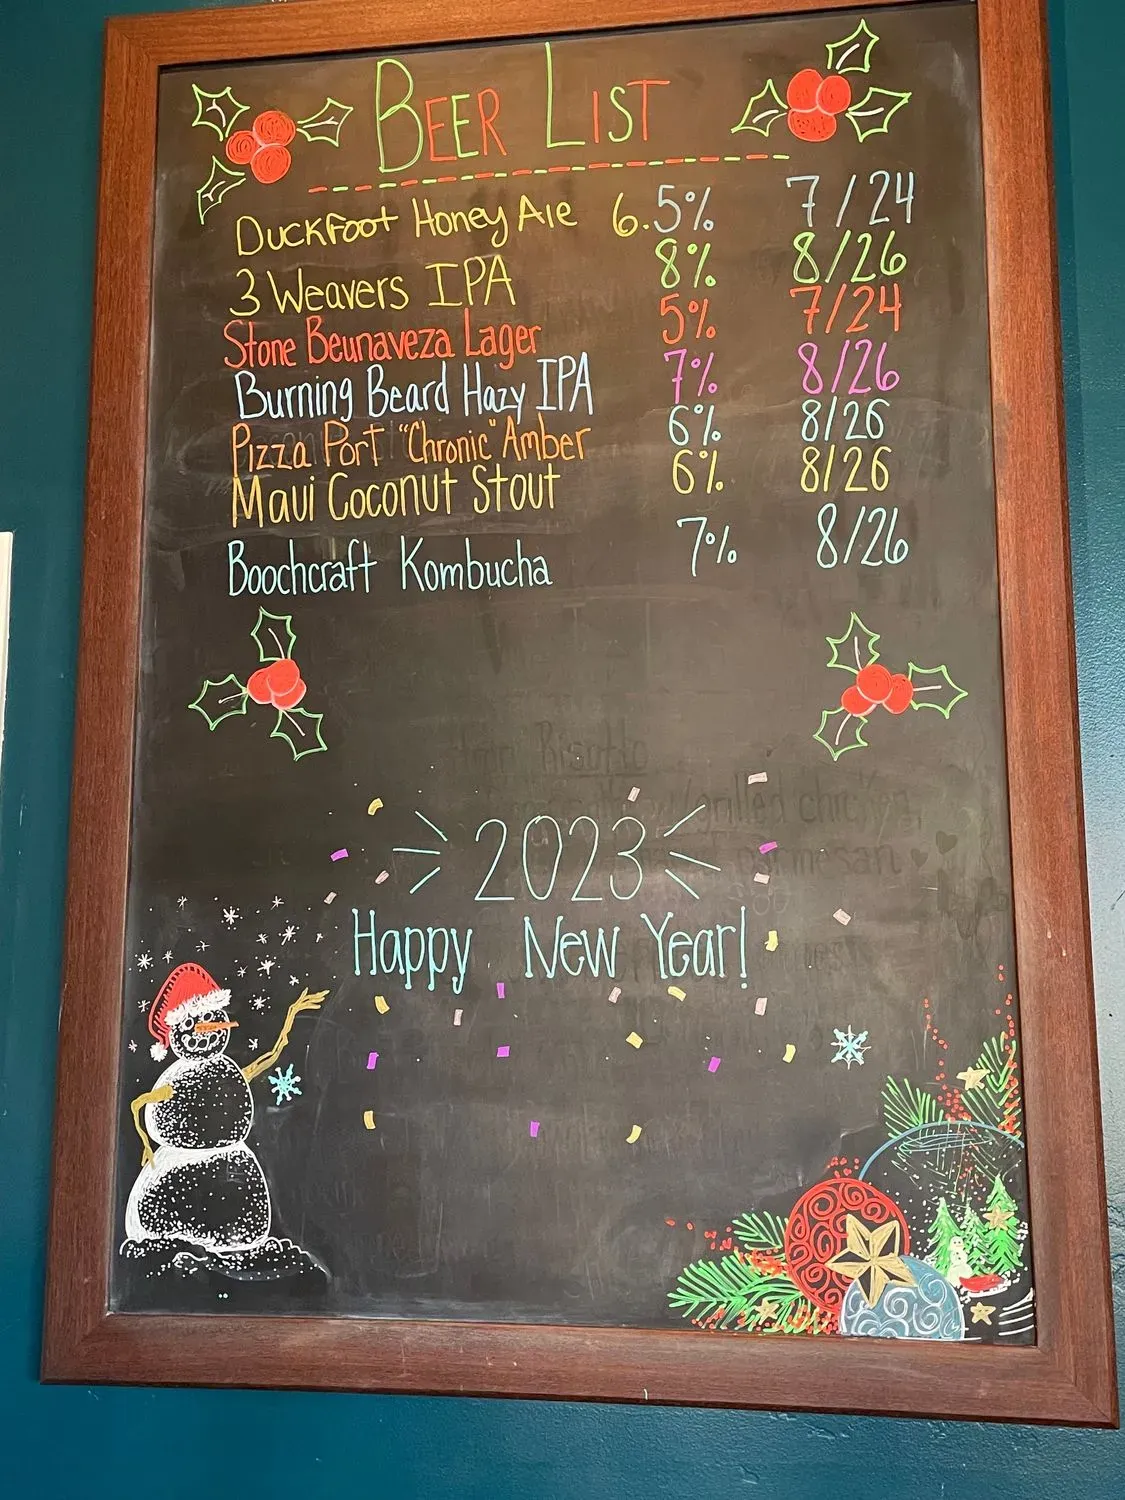 BEER LIST
Duckfoot Honey Ale 6.5% 7/24
3 Weavers IPA 8% 8/26
Stone Beunaveza Lager 5% 7/24
Burning Beard Hazy IPA 7% 8/26
Pizza Port "Chronic" Amber 6% 8/26
Maui Coconut Stout 6% 8/26
Boochcraft Kombucha 7% 8/26
Risotto
grilled chicken
parmesan
2023
Happy New Year!